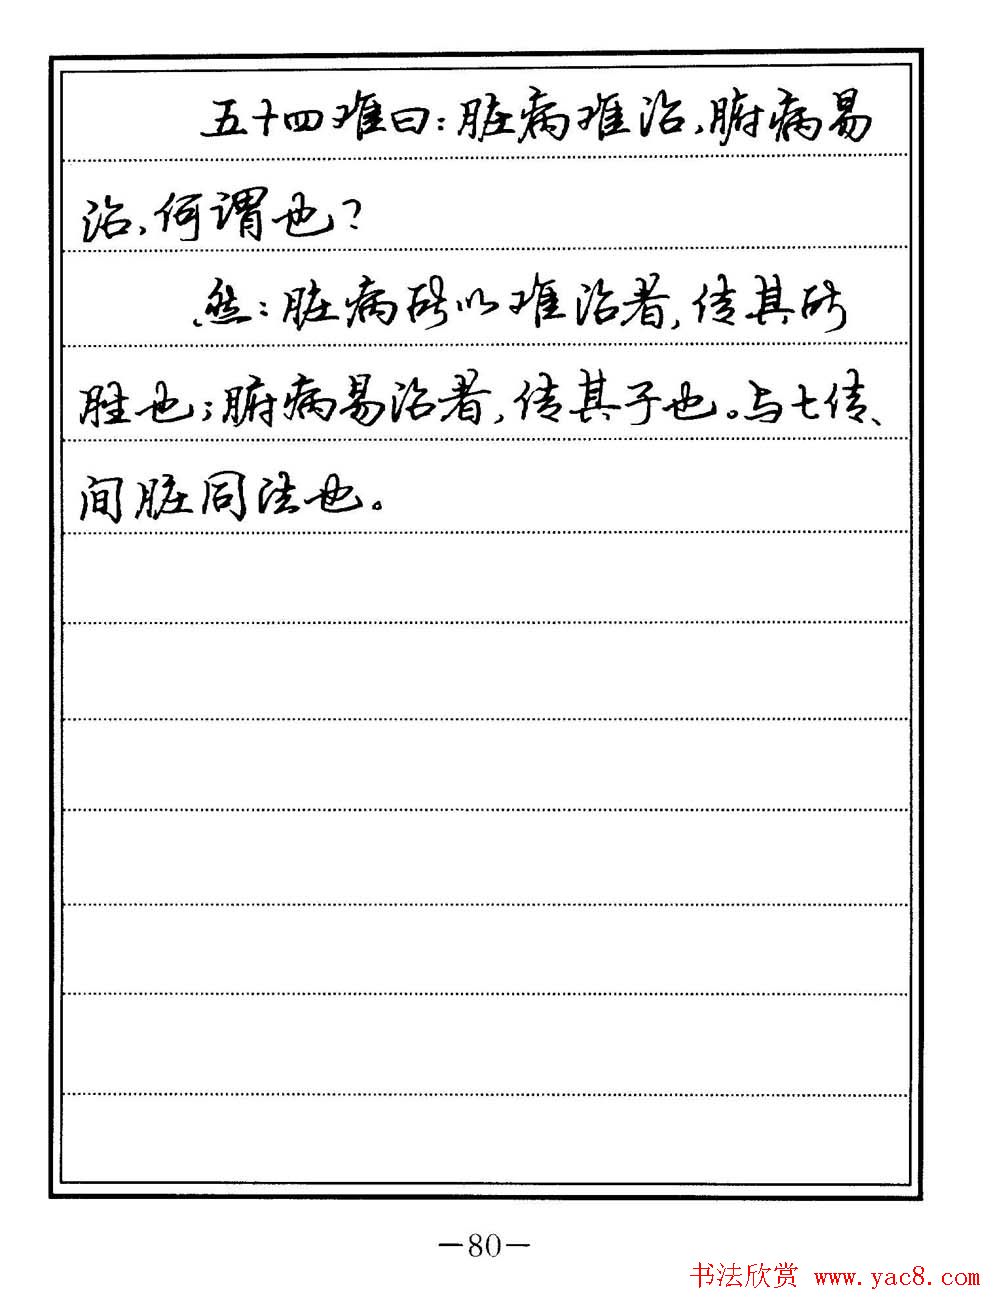 五十四难曰：脏病难治，腑病易
治，何谓也？
然：脏病所以难治者，传其所
胜也；腑病易治者，传其子也。与七传、
间脏同法也。
—80—
书法欣赏 www.yac8.com